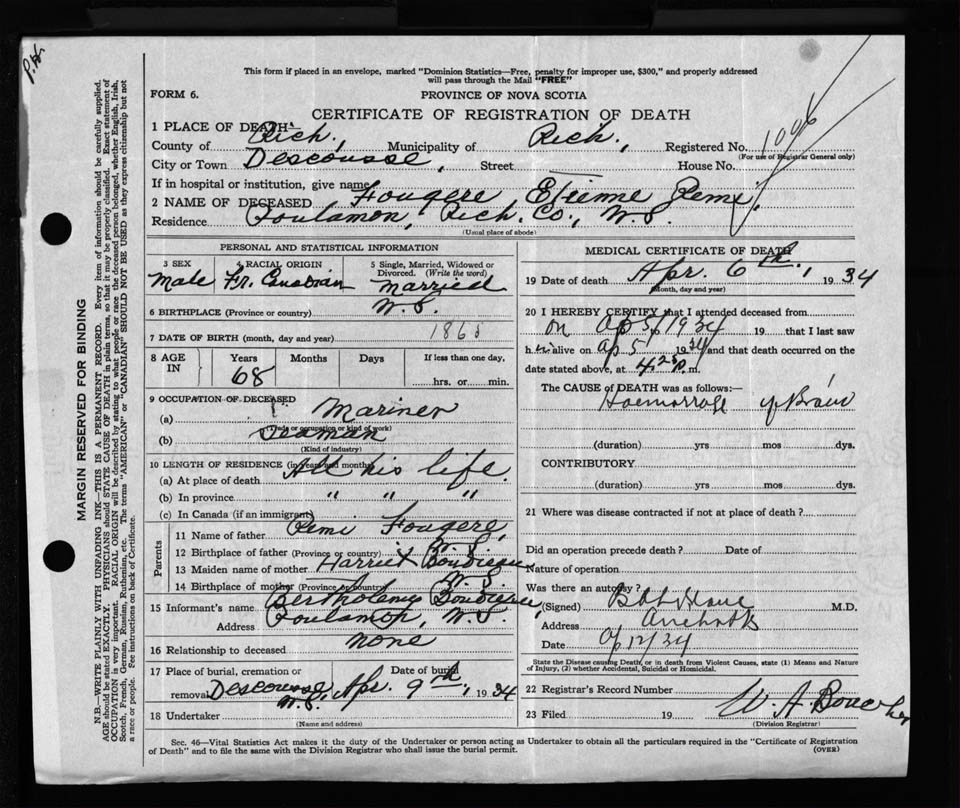 P.H.
This form if placed in an envelope, marked "Dominion Statistics—Free, penalty for improper use, $300," and properly addressed
will pass through the Mail "FREE"
FORM 6.
PROVINCE OF NOVA SCOTIA
CERTIFICATE OF REGISTRATION OF DEATH
1 PLACE OF DEATH
County of Rich., Municipality of Rich., Registered No. 1096
(For use of Registrar General only)
City or Town Descousse, Street House No.
If in hospital or institution, give name
2 NAME OF DECEASED Fougere Etienne Remi,
Residence Poulamon, Rich. Co., N.S.
(Usual place of abode)
PERSONAL AND STATISTICAL INFORMATION
3 SEX 4 RACIAL ORIGIN 5 Single, Married, Widowed or
Divorced. (Write the word)
Male Fr. Canadian Married
6 BIRTHPLACE (Province or country) N.S.
7 DATE OF BIRTH (month, day and year)
8 AGE IN Years Months Days If less than one day,
68 hrs. or min.
9 OCCUPATION OF DECEASED
(a) Mariner
(Trade or occupation or kind of work)
(b) Seaman
(Kind of industry)
10 LENGTH OF RESIDENCE (in years and months)
(a) At place of death All his life.
(b) In province " " "
(c) In Canada (if an immigrant)
Parents
11 Name of father Remi Fougere,
12 Birthplace of father (Province or country) N.S.
13 Maiden name of mother Harriet
14 Birthplace of mother (Province or country) N.S.
15 Informant's name
Address Poulamon, N.S.
16 Relationship to deceased None
17 Place of burial, cremation or Date of burial
removal Descousse, N.S. Apr. 9th, 1934
18 Undertaker
(Name and address)
MEDICAL CERTIFICATE OF DEATH
19 Date of death Apr. 6th, 1934
(Month, day and year)
20 I HEREBY CERTIFY that I attended deceased from
on Ap 5/1934 19 that I last saw
him alive on Ap 5 1934 and that death occurred on the
date stated above, at p.m.
The CAUSE of DEATH was as follows:—
Haemorrage of Brain
(duration) yrs mos dys.
CONTRIBUTORY
(duration) yrs mos dys.
21 Where was disease contracted if not at place of death?
Did an operation precede death? Date of
Nature of operation
Was there an autopsy?
(Signed) M.D.
Address Arichat
Date Ap 12/34
State the Disease causing Death, or in death from Violent Causes, state (1) Means and Nature
of Injury, (2) whether Accidental, Suicidal or Homicidal.
22 Registrar's Record Number
23 Filed 19 W. A. Boucher
(Division Registrar)
Sec. 46—Vital Statistics Act makes it the duty of the Undertaker or person acting as Undertaker to obtain all the particulars required in the "Certificate of Registration
of Death" and to file the same with the Division Registrar who shall issue the burial permit. (OVER)
MARGIN RESERVED FOR BINDING
N.B.—WRITE PLAINLY WITH UNFADING INK—THIS IS A PERMANENT RECORD. Every item of information should be carefully supplied.
AGE should be stated EXACTLY. PHYSICIANS should STATE CAUSE OF DEATH in plain terms, so that it may be properly classified. Exact statement of
OCCUPATION is very important. RACIAL ORIGIN will be described by stating to what people or race the deceased person belonged, whether English, Irish,
Scotch, French, German, Russian, Ruthenian, etc. The terms "AMERICAN" or "CANADIAN" SHOULD NOT BE USED as they express citizenship but not
a race or people. See instructions on back of Certificate.